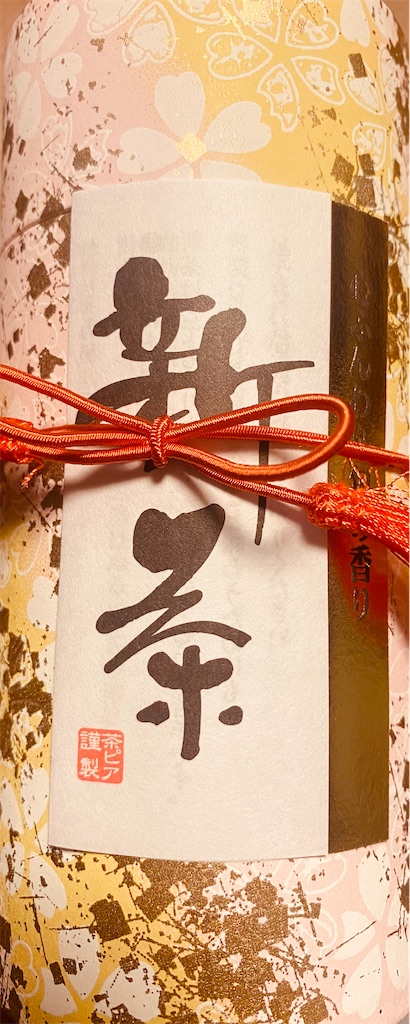 新茶
香り
茶ピア
謹製